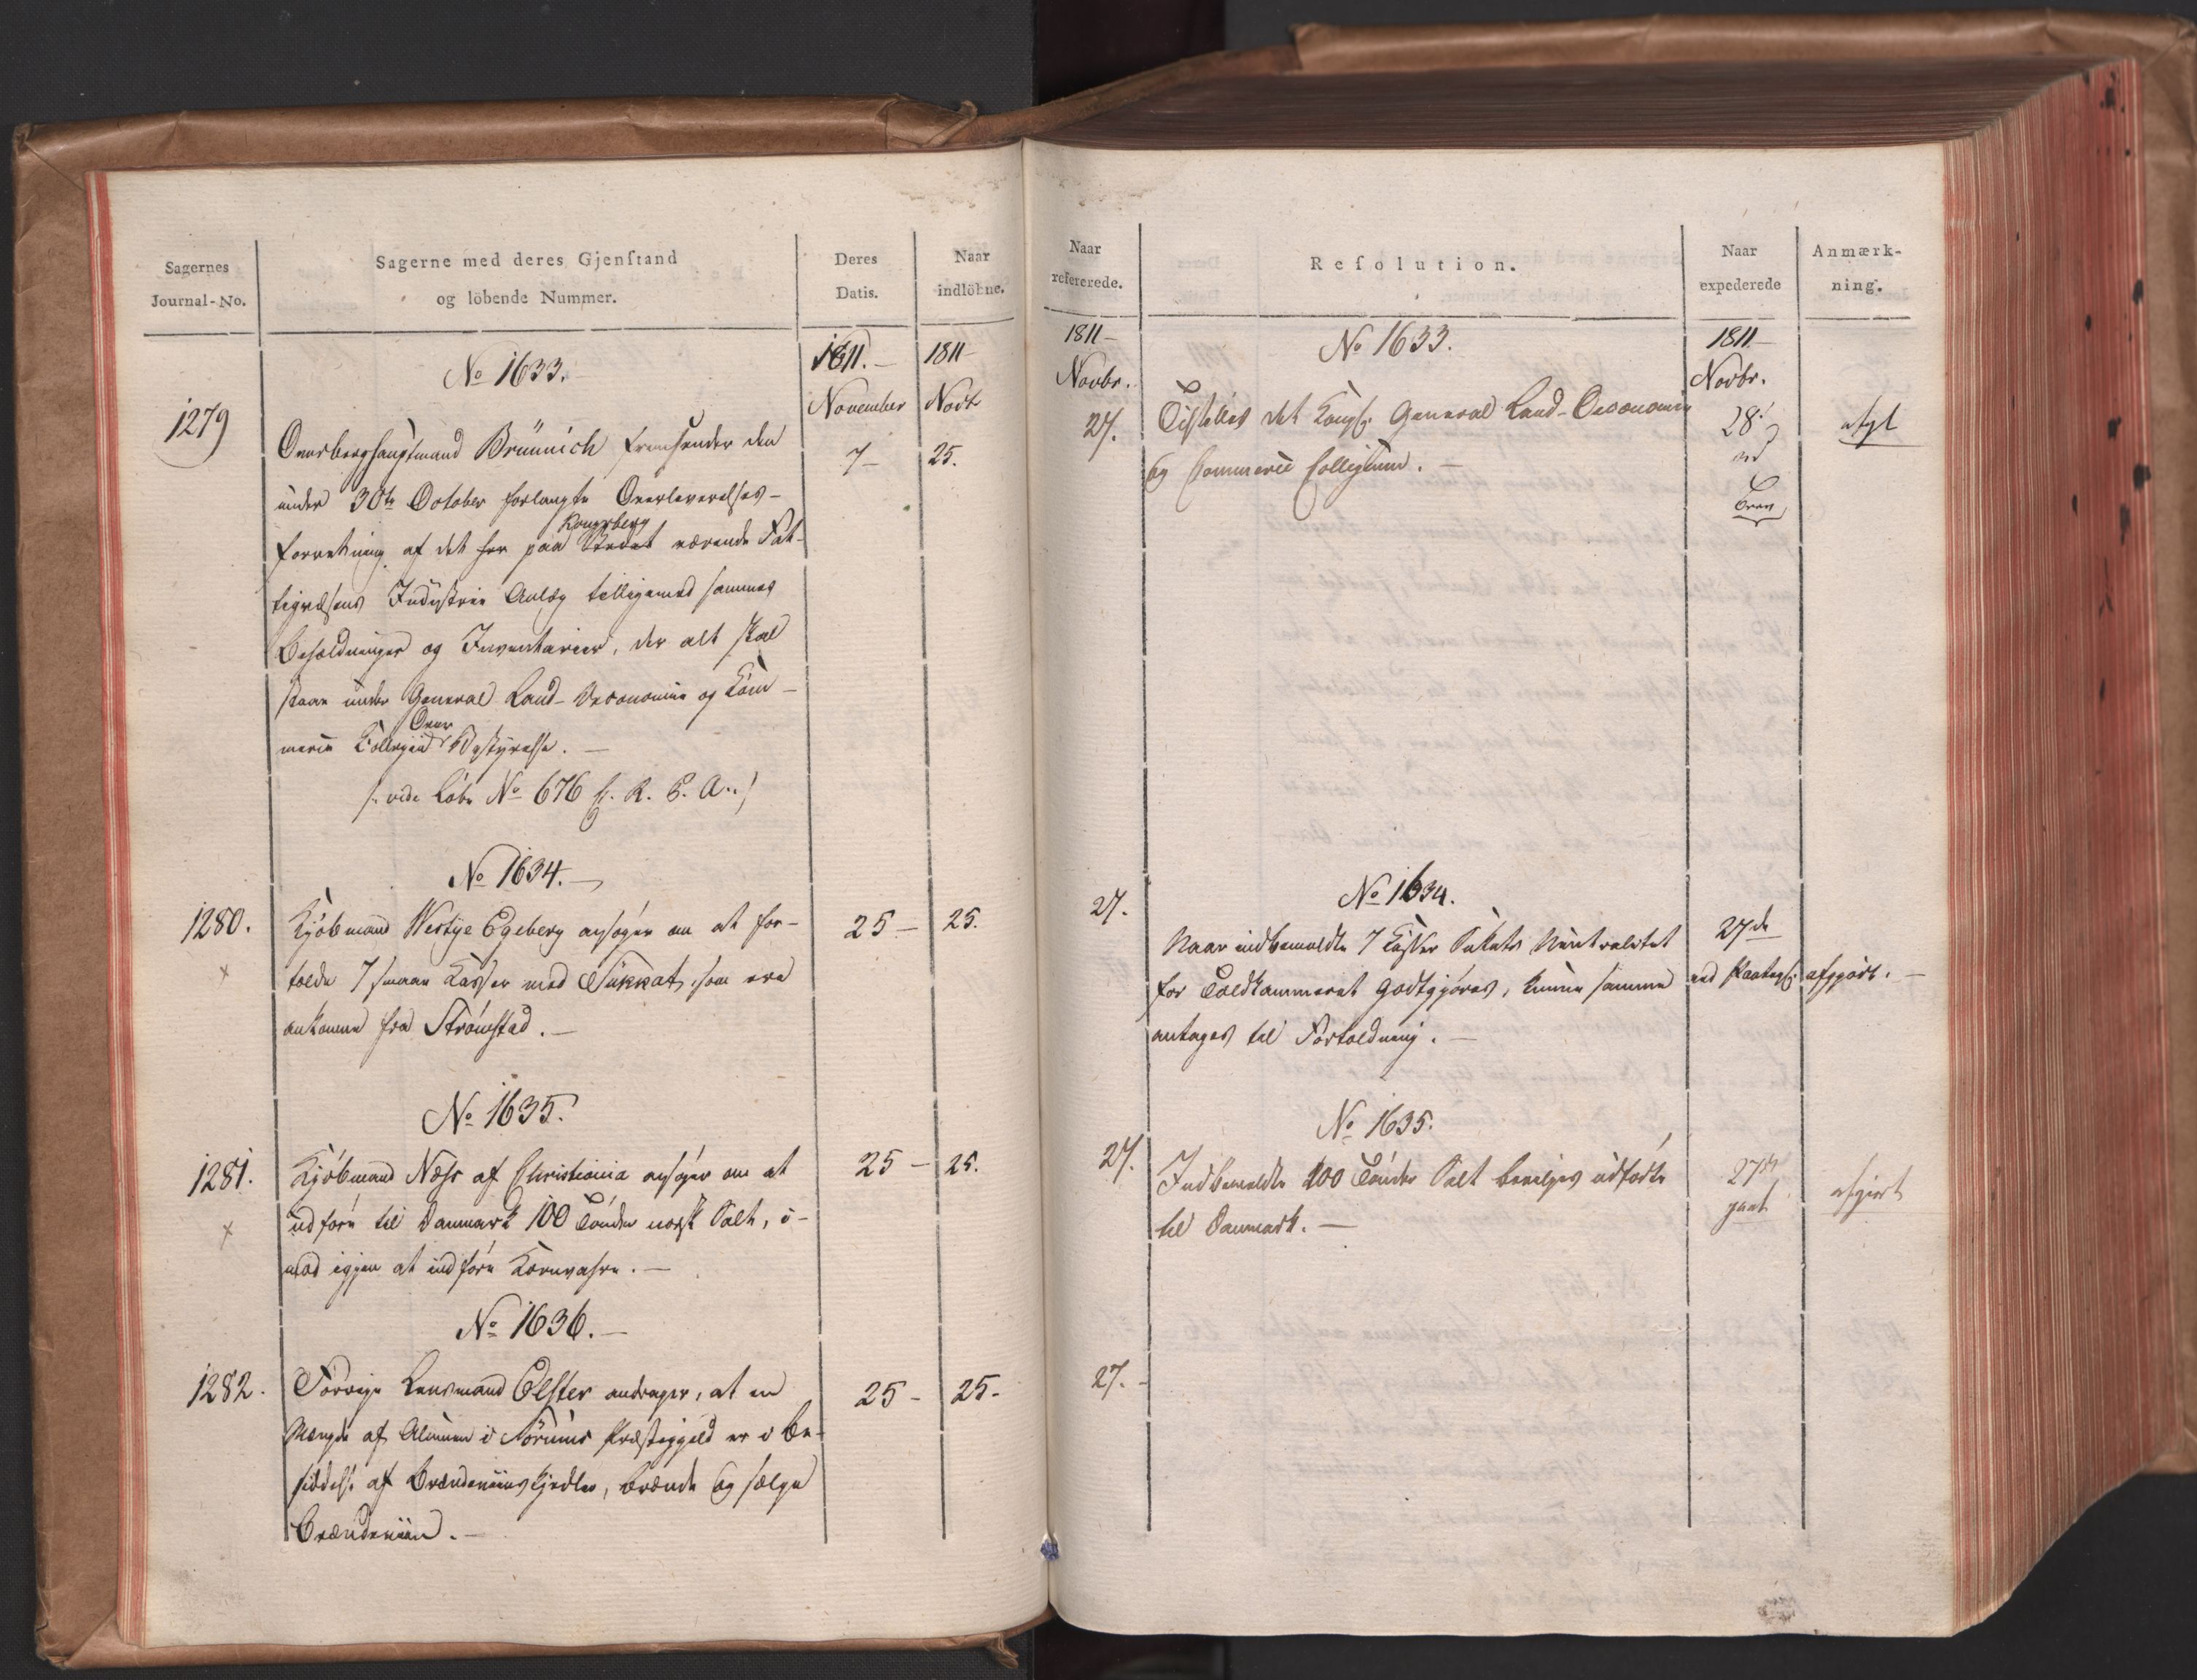 Sagernes
Journal-No.
Sagerne med deres Gjenſtand
og löbende Nummer.
Deres
Datis.
Naar
indlöbne.
1811.-
November
1811-
Novbr
No 1633.
1279
Overberghauptmand Brünnich fremsender den
7-
25.
under 30te October forlangte Overleverelses-
Kongsberg
forretning af det her paa Stedet værende Fat-
tigvæsens Industrie Anlæg tilligemed sammes
Beholdninger og Inventarier, der alt skal
staae under General Land-Oeconomie og Com-
Over
merce Collegiets Bestyrelse. -
/: vide Löbe No 676 f. R. P. A :/
No 1634.-
1280.
Kjöbmand Westye Egeberg ansöger om at for-
25-
25.
tolde 7 smaae Kasser med Sukkat, som ere
ankomne fra Strömstad. -
No 1635.
1281.
Kjöbmand Næss af Christiania ansöger om at
25-
25.
udföre til Danmark 100 Tönder norsk Salt, i-
mod igjen at indföre Kornvahre. -
No 1636.-
1282.
Forrige Lensmand Elster andrager, at en
25-
25-
Mængde af Almuen i Sörums Præstegjeld er i Be-
siddelse af Brændeviinskjedler, brænde og sælge
Brændeviin. -
Naar
refererede.
Reſolution.
Naar
expederede
Anmærk-
ning.
1811-
Novbr.
1811.-
Novbr.
No 1633.
27.
Tilstilles det Kongl. General Land-Oeconomie
og Commerce Collegium. -
28
ved
Brev
afgt
No 1634.
27.
Naar indbemeldte 7 Kasser Sukats Neutralitet
for Toldkammeret godtgjöres, kunne samme
antages til Fortoldning. -
27de
ved Paategn.
afgjört. -
No 1635.
27.
Indbemeldte 100 Tönder Salt bevilges udförte
til Danmark. -
27de
afgjort
27.-